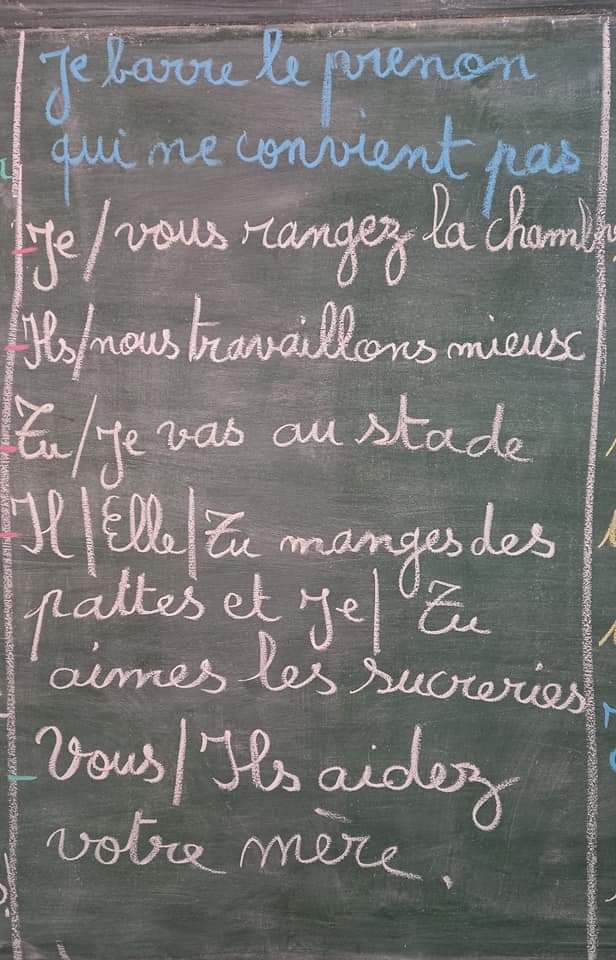 Je barre le prenon
qui ne convient pas
Je / vous rangez la chambre
Ils/nous travaillons mieux
Tu / Je vas au stade
Il | Elle | Tu manges des
pattes et Je | Tu
aimes les sucreries
Vous | Ils aidez
votre mère.